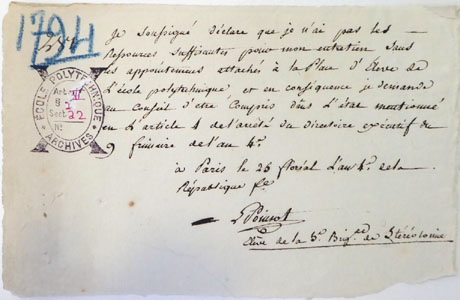 1794
Je soussigné déclare que je n'ai pas les
Ressources suffisantes pour mon entretien sans
les appointemens attachés à la Place d'Eleve de
L'école polytechnique, et en conséquence je demande
au Conseil d'etre Compris dans L'état mentionné
en L'article 4 de l'arrêté du directoire exécutif du
9 frimaire de l'an 4e.
à Paris le 26 floréal L'an 4e. de la
République fse
L Poinsot
élève de la 5e. Brigde de Stéréotomie
ÉCOLE POLYTECHNIQUE
ARCHIVES
Art.
Sect.
22
No